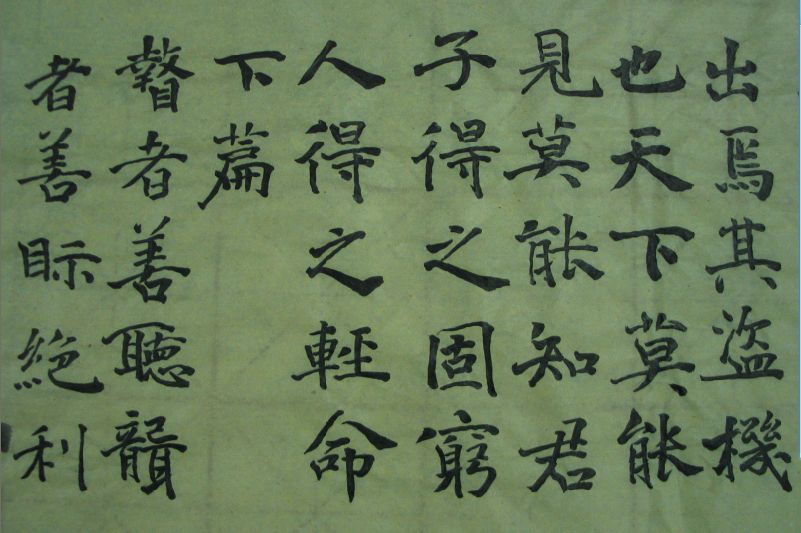 出焉其盜機
也天下莫能
見莫能知君
子得之固窮
人得之輕命
下篇
瞽者善聽聾
者善眎絕利